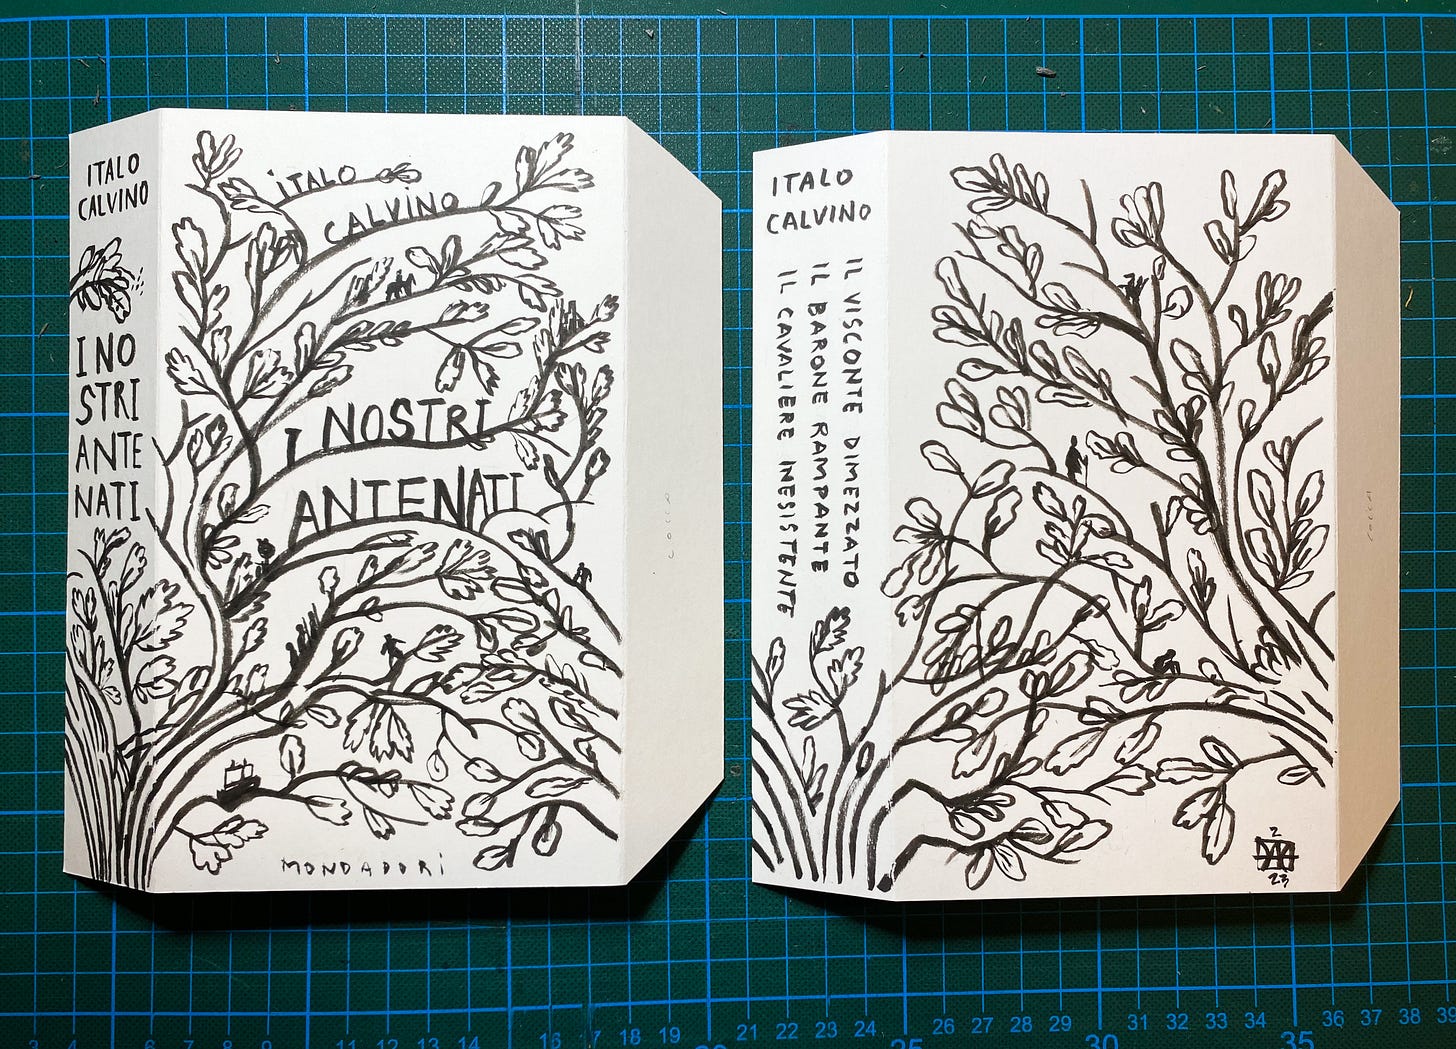 ITALO
CALVINO
I NO
STRI
ANTE
NATI
iTALO
CALViNO
I NOSTRI
ANTENATI
MONDADORi
COLLA
ITALO
CALVINO
IL VISCONTE DIMEZZATO
IL BARONE RAMPANTE
IL CAVALIERE INESISTENTE
COLLA
2
23
3 4 6 7 8 9 11 12 13 14 16 17 18 19 21 22 23 24 25 26 27 28 29 30 31 32 33 34 35 36 37 38 39